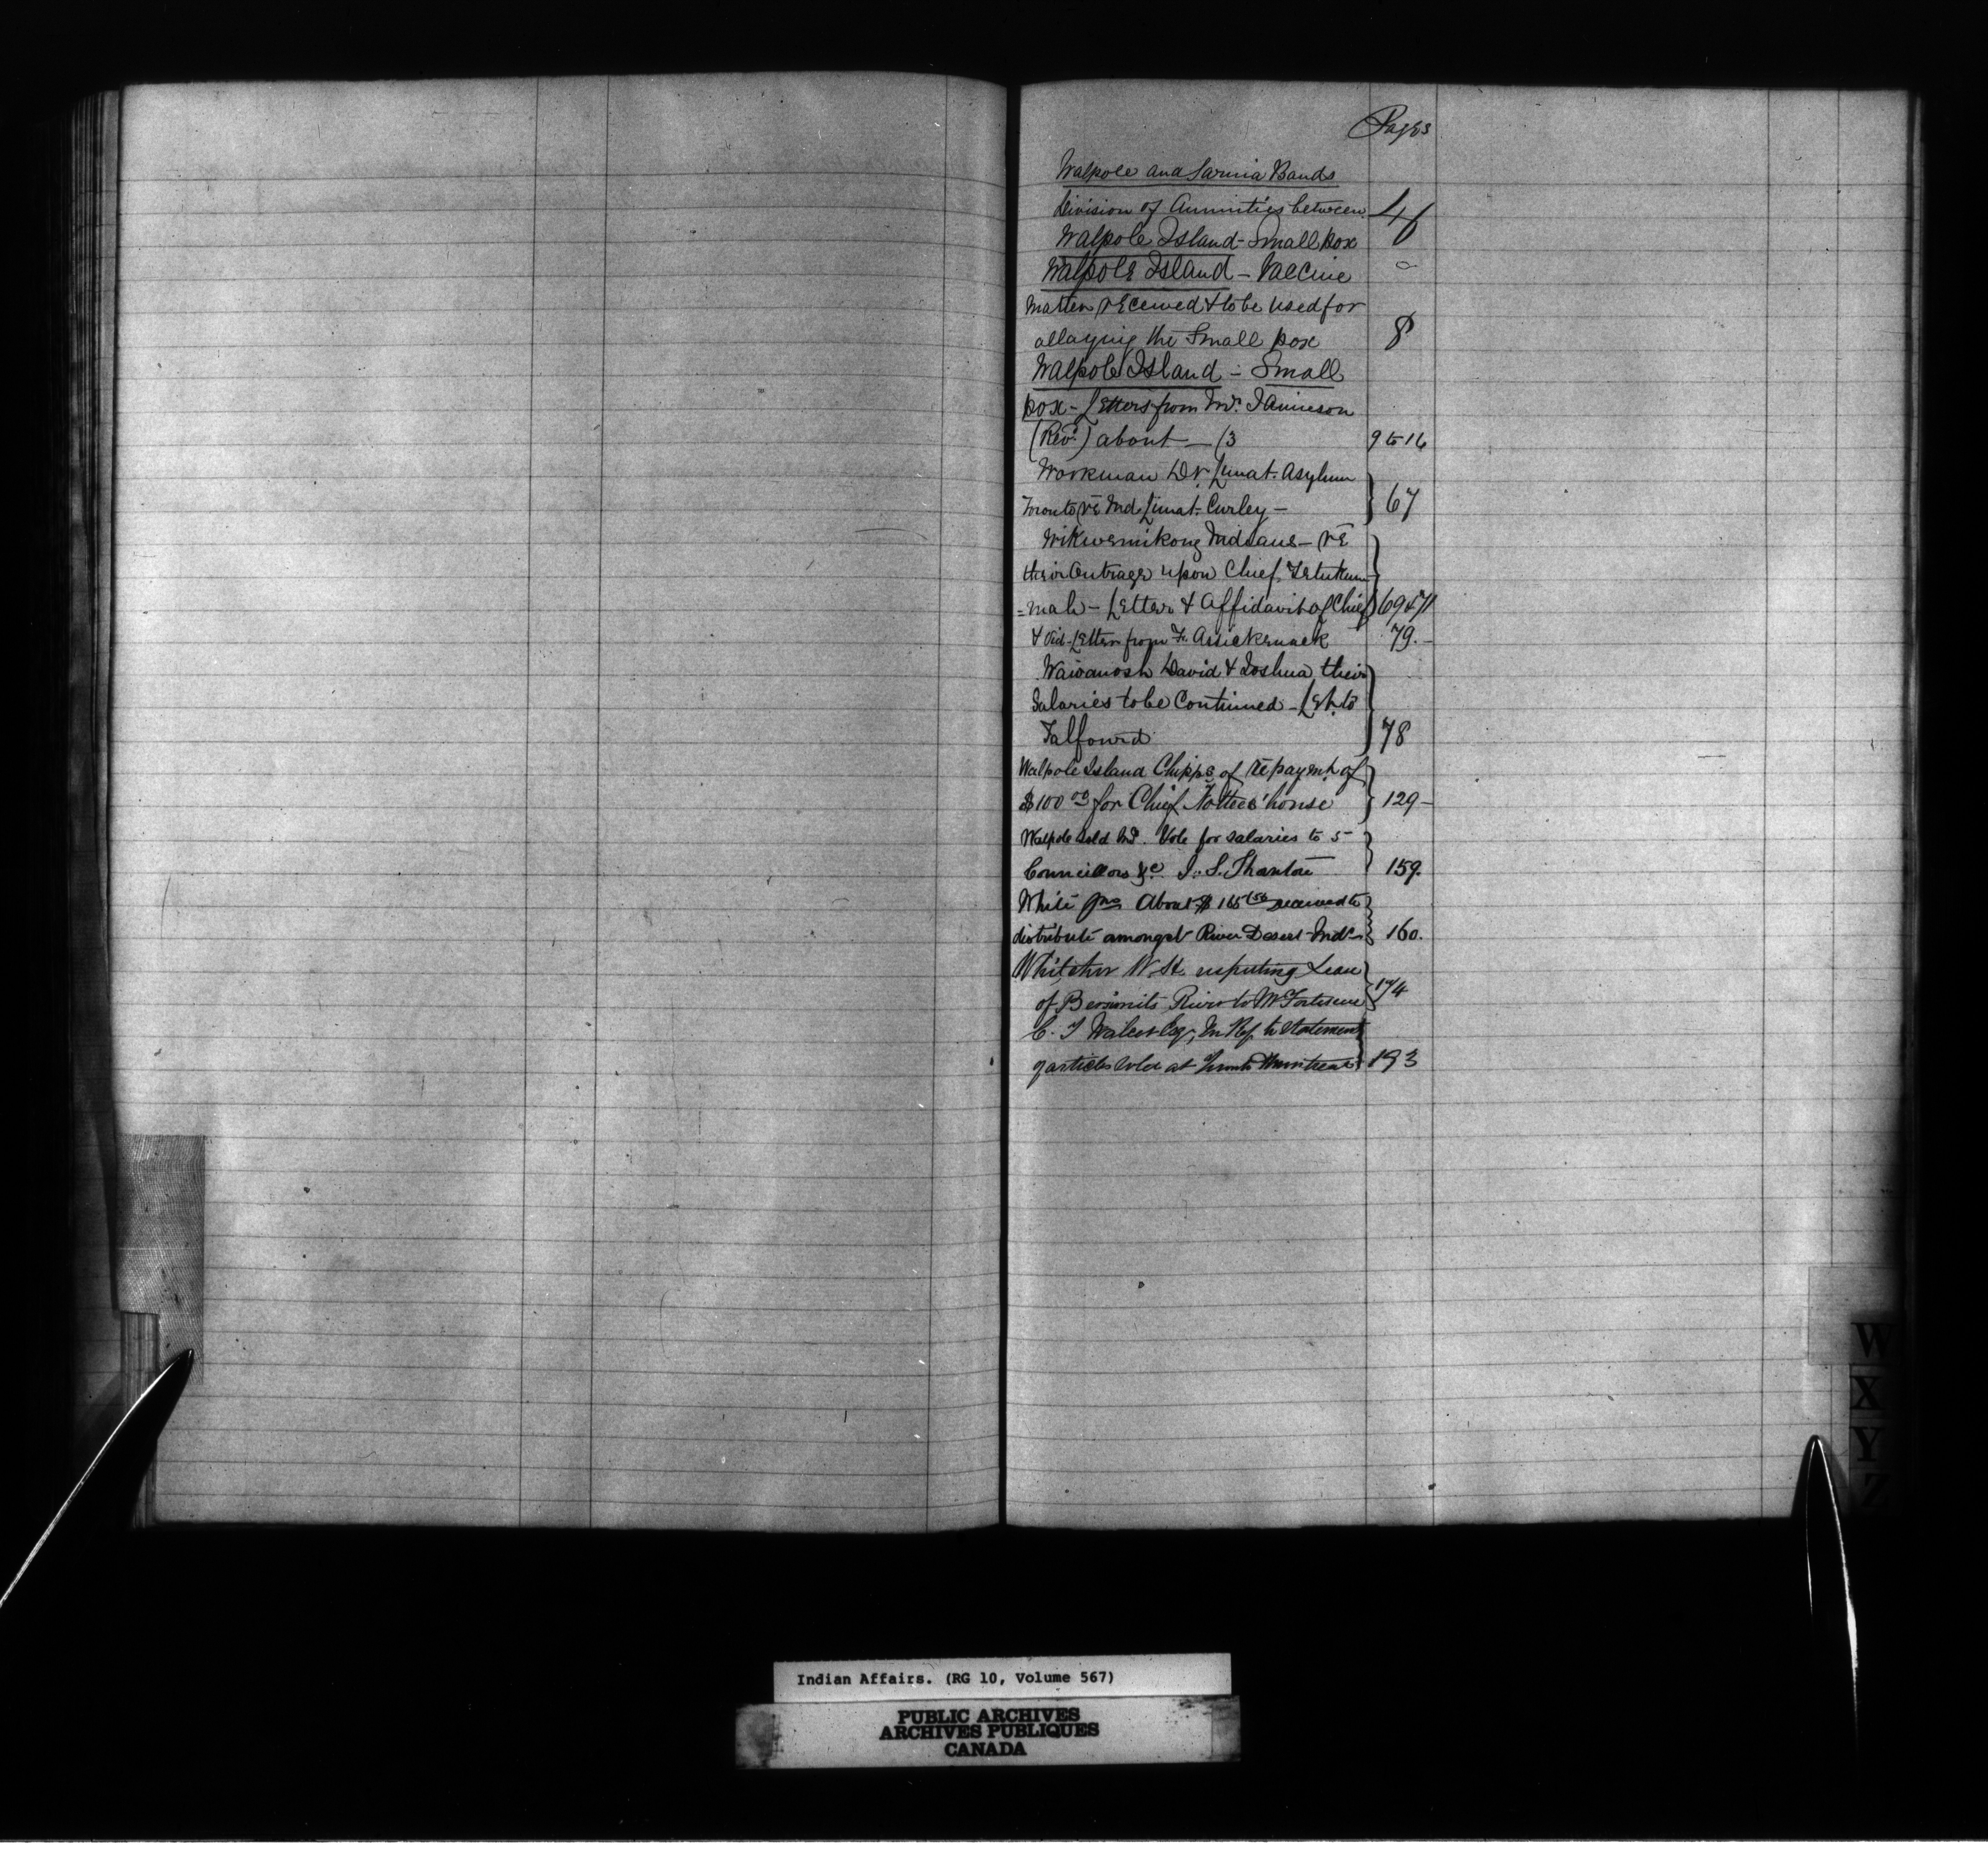 Pages
Walpole and Sarnia Bands
division of Annuities between 4
Walpole Island - Small pox
Walpole Island - Vaccine
Matter received & to be used for
allaying the Small pox 8
Walpole Island - Small
pox - Letters from Mr. Jamieson
(Revd.) about — 13 9 to 16
Workman Dr. Lunat. Asylum
Toronto re Ind. Lunat. Curley - 67
Wikwemikong Indians - re
their Outrage upon Chief
=mah - Letter & Affidavit of Chief 69 & 71
& Letter from F. Assickenack 79. -
Wawanosh David & Joshua, their
Salaries to be Continued - Let. to
Talfourd 78
Walpole Island Chippe of repaymt. of
$100 00 for Chief house 129 -
Walpole Isld Ind. Vote for salaries to 5
Councillors &c 159.
White Jno About $ 165 received to
distribute amongst River Desert Inds 160.
Whitcher W. H. respecting Lease
of Bersimits River to 174
C. T. Walcot Esq, In Ref. to Statement
of articles sold at Montreal 193
W
X
Y
Z
Indian Affairs. (RG 10, Volume 567)
PUBLIC ARCHIVES
ARCHIVES PUBLIQUES
CANADA